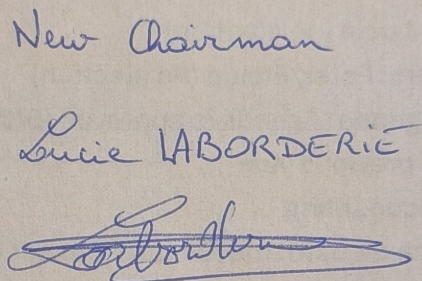 New Chairman
Lucie LABORDERIE